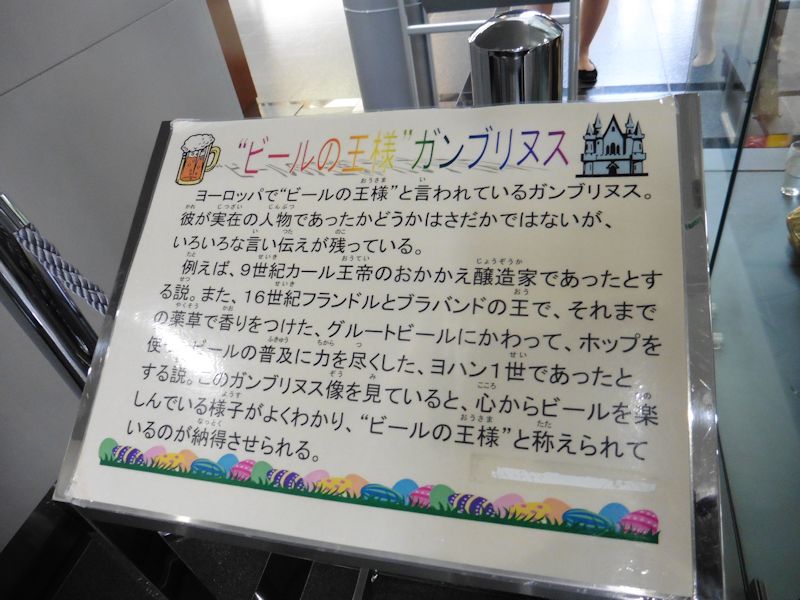 “ビールの王様”ガンブリヌス
ヨーロッパで“ビールの王様”と言われているガンブリヌス。
彼が実在の人物であったかどうかはさだかではないが、
いろいろな言い伝えが残っている。
例えば、9世紀カール王帝のおかかえ醸造家であったとす
る説。また、16世紀フランドルとブラバンドの王で、それまで
の薬草で香りをつけた、グルートビールにかわって、ホップを
使ったビールの普及に力を尽くした、ヨハン1世であったと
する説。このガンブリヌス像を見ていると、心からビールを楽
しんでいる様子がよくわかり、“ビールの王様”と称えられて
いるのが納得させられる。